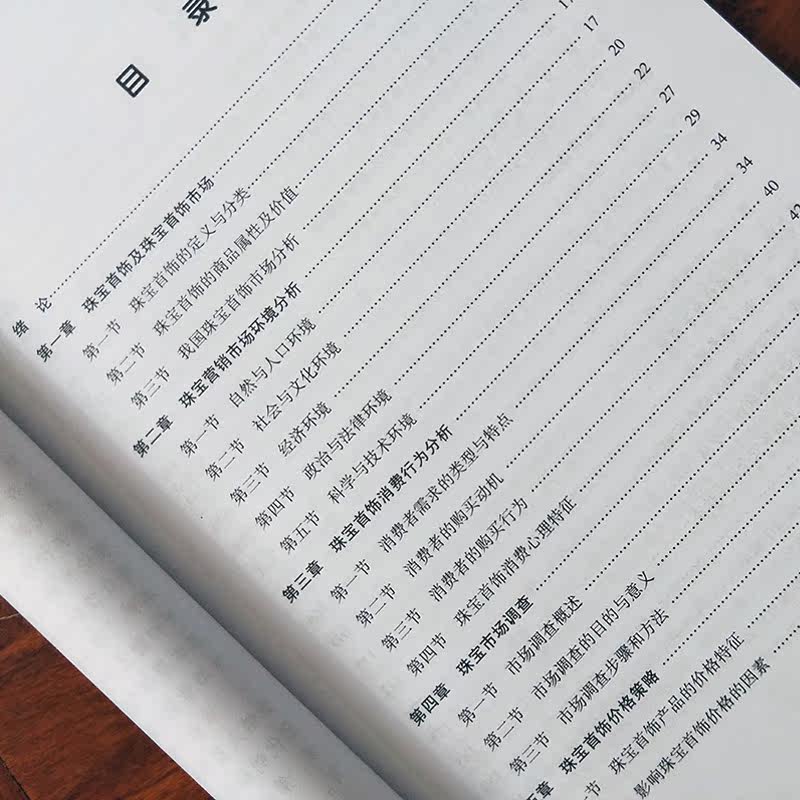 目 录
绪 论
第一章 珠宝首饰及珠宝首饰市场
第一节 珠宝首饰的定义与分类
第二节 珠宝首饰的商品属性及价值
第三节 我国珠宝首饰市场分析
第二章 珠宝营销市场环境分析
第一节 自然与人口环境 17
第二节 社会与文化环境 20
第三节 经济环境 22
第四节 政治与法律环境 27
第五节 科学与技术环境 29
第三章 珠宝首饰消费行为分析 34
第一节 消费者需求的类型与特点 34
第二节 消费者的购买动机 40
第三节 消费者的购买行为 42
第四节 珠宝首饰消费心理特征
第四章 珠宝市场调查
第一节 市场调查概述
第二节 市场调查的目的与意义
第三节 市场调查步骤和方法
章 珠宝首饰价格策略
节 珠宝首饰产品的价格特征
影响珠宝首饰价格的因素